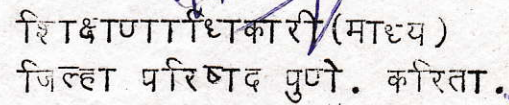 शिक्षाणााधिकारी (माध्य)
जिल्हा परिषाद पुणे. करिता.